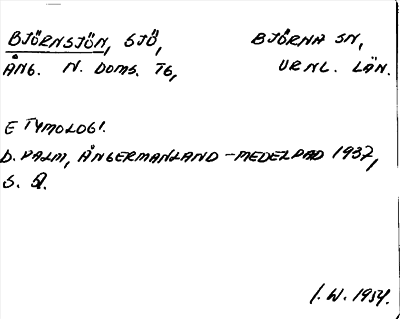 BJÖRNSJÖN, SJÖ, BJÖRNA SN,
ÅNG. N. DOMS. TG, VRNL. LÄN.
ETYMOLOGI.
D. PALM, ÅNGERMANLAND-MEDELPAD 1937,
S.
I.W. 1954.